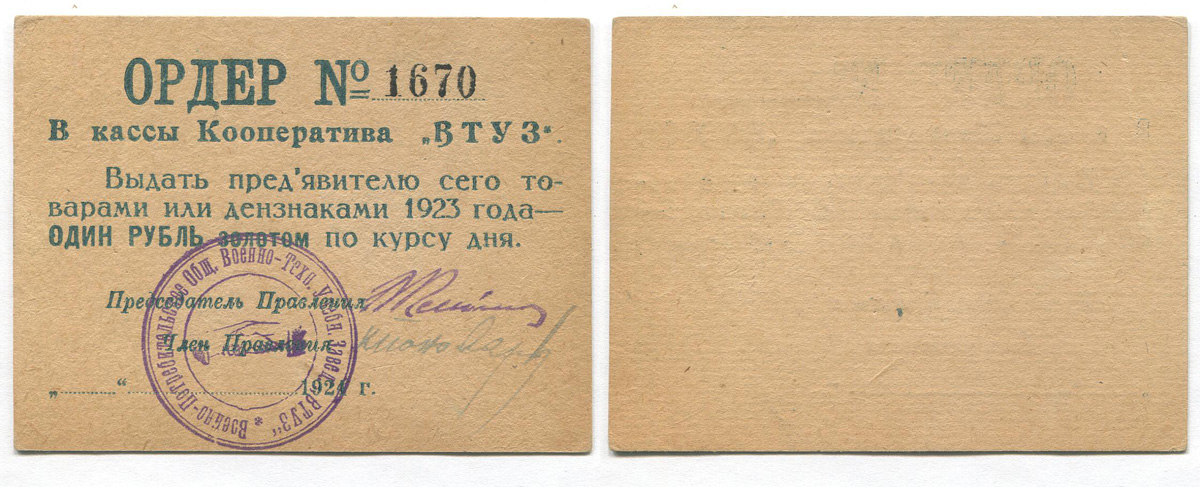 ОРДЕР № 1670
В кассы Кооператива „ВТУЗ“.
Выдать пред'явителю сего то-
варами или дензнаками 1923 года—
ОДИН РУБЛЬ золотом по курсу дня.
Председатель Правления
Член Правления
„ “ 1924 г.
Военно-Потребительское Общ. Военно-Техн. Учебн. Завед. „ВТУЗ“ *